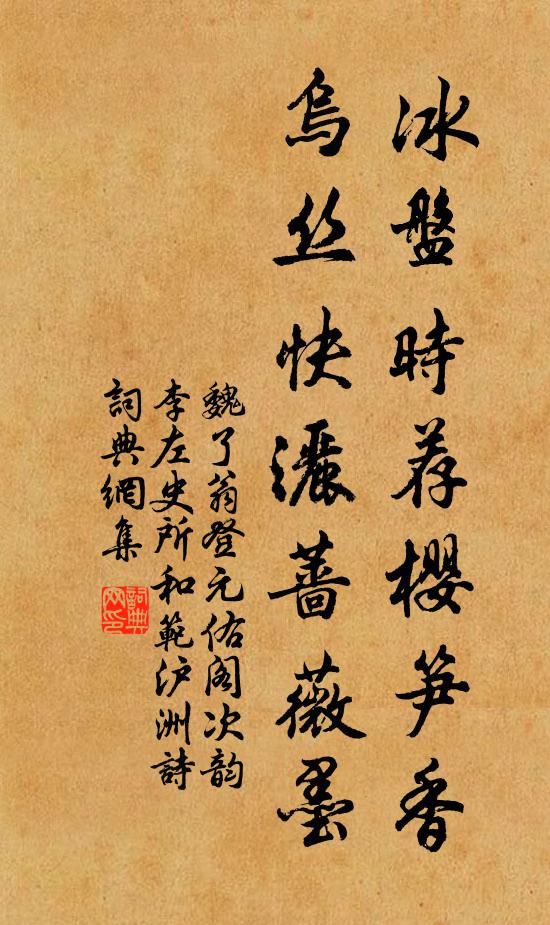 冰盤時荐櫻笋香
烏丝快灑薔薇墨
魏了翁登元佑阁次韵
李左史所和範沪洲詩
詞典網集
詞典網印